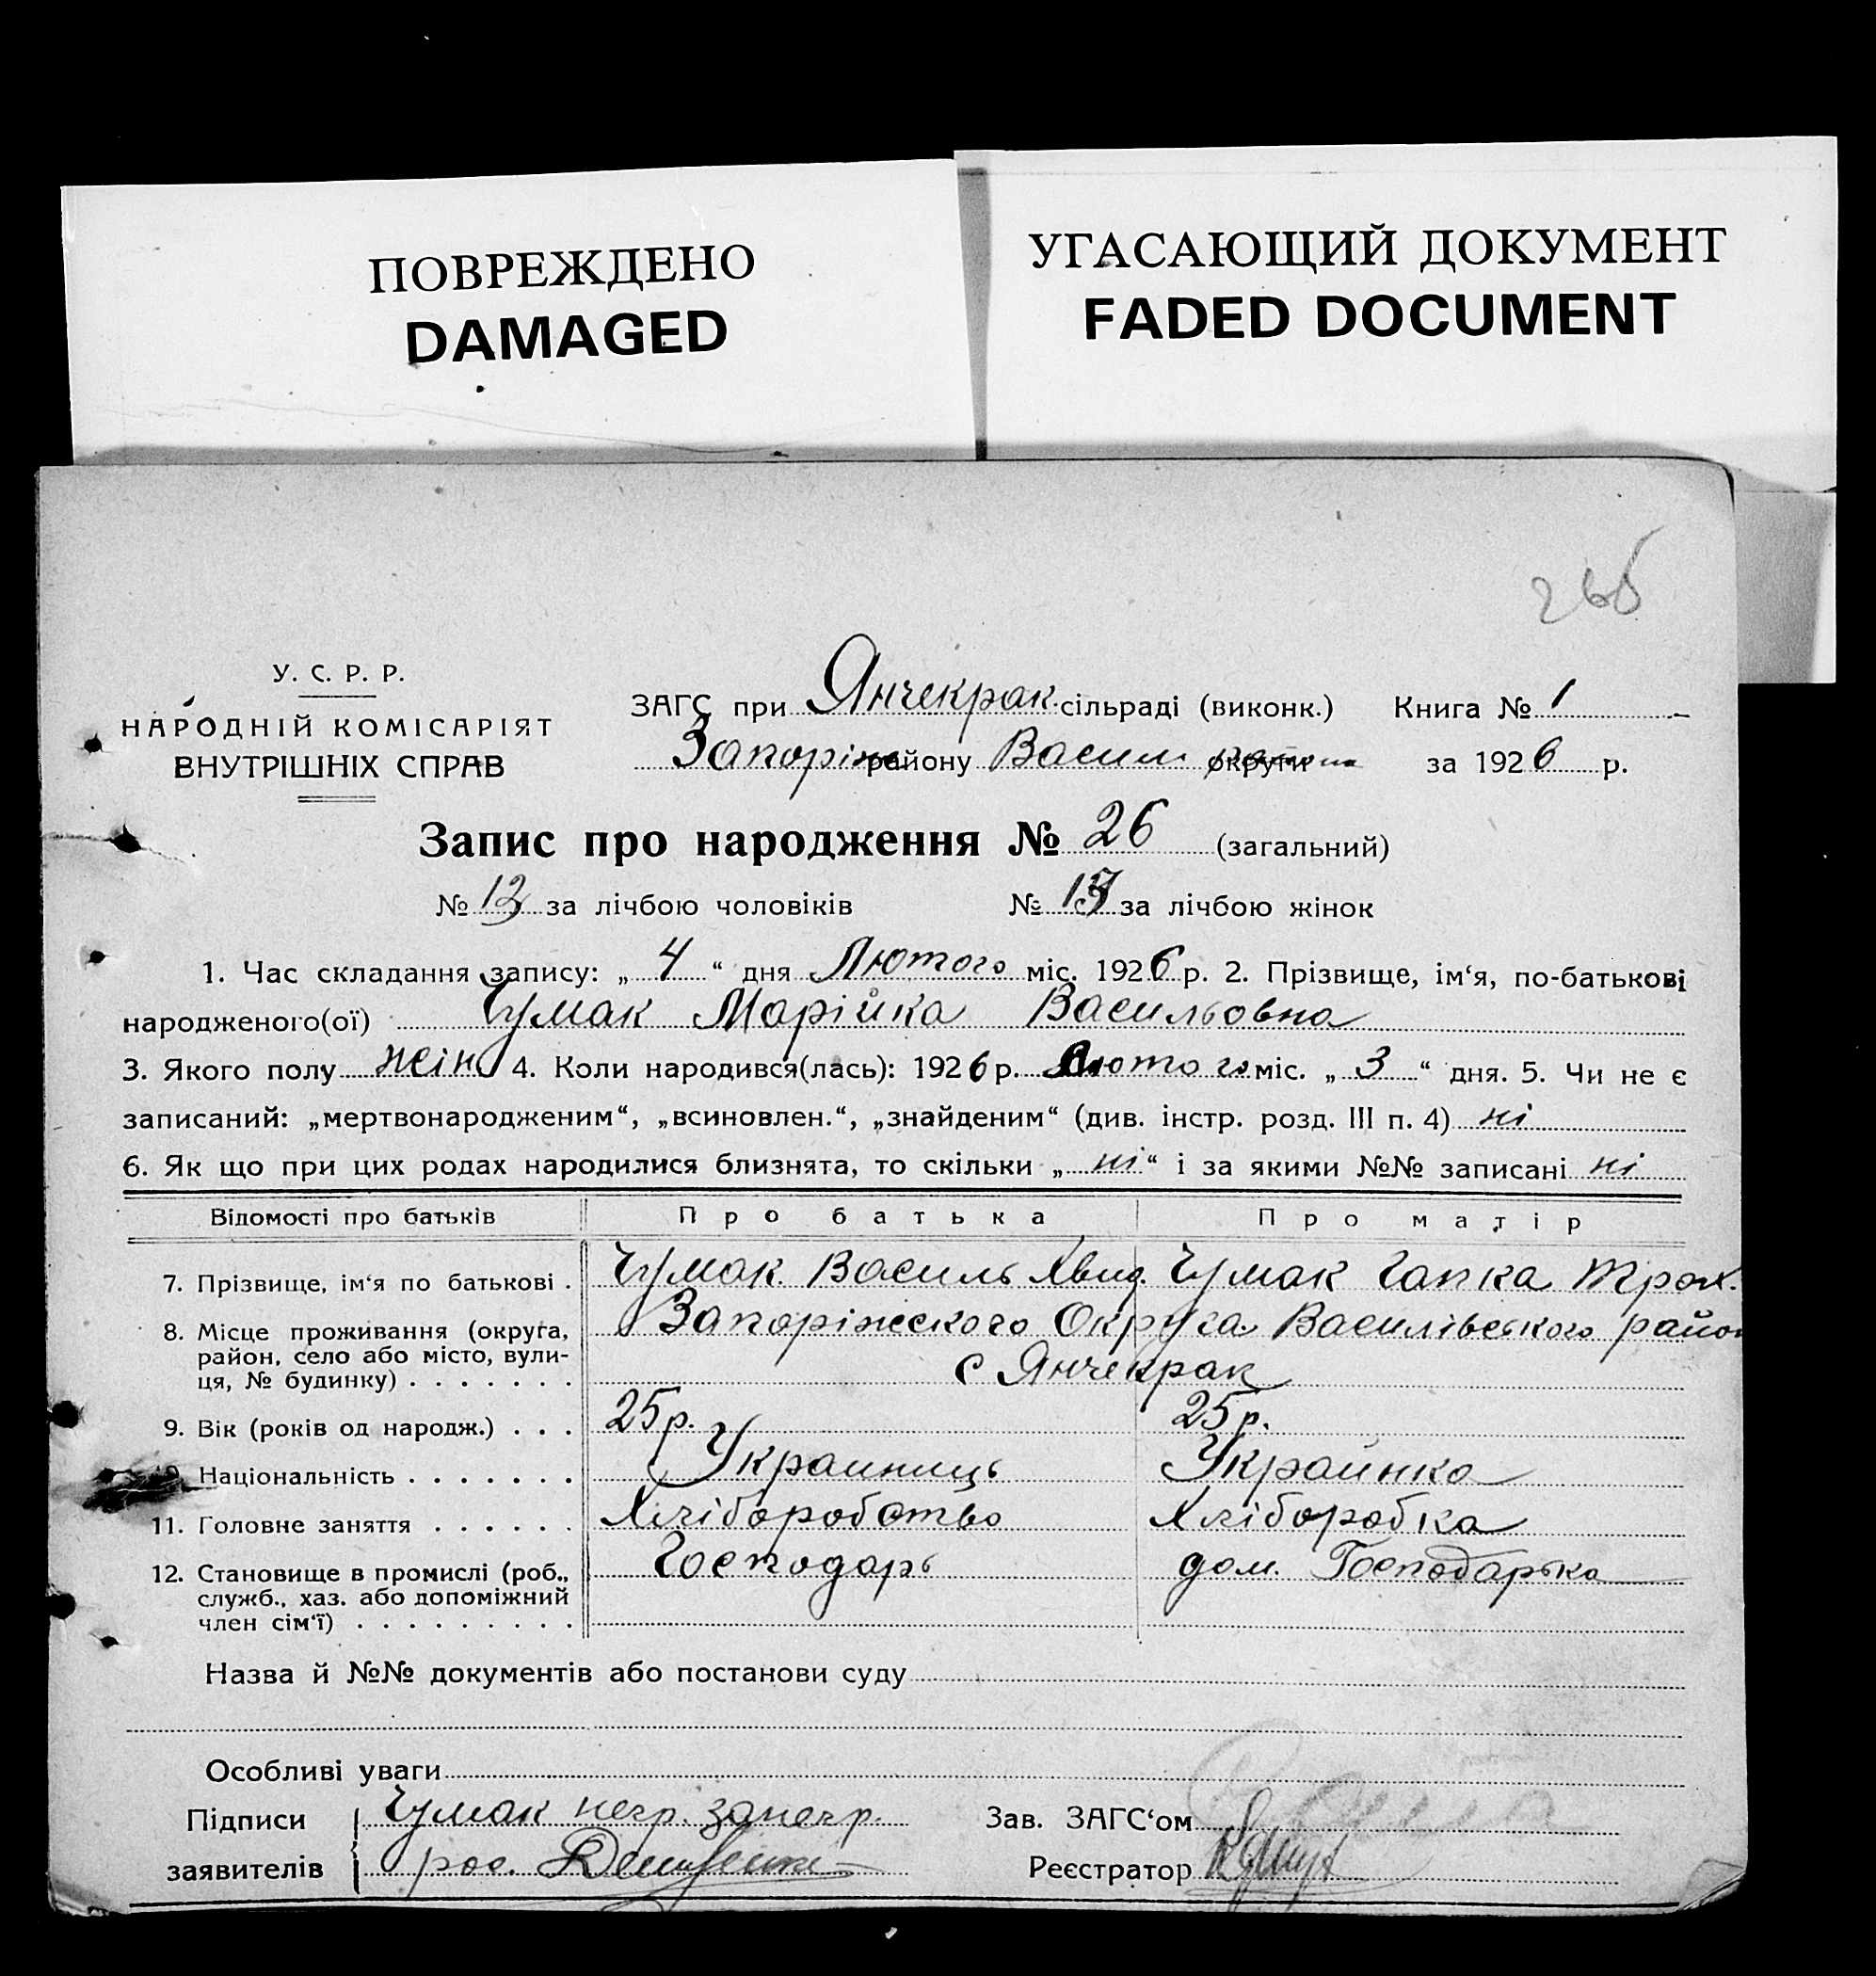 ПОВРЕЖДЕНО
DAMAGED
УГАСАЮЩИЙ ДОКУМЕНТ
FADED DOCUMENT
266
У. С. Р. Р.
НАРОДНІЙ КОМІСАРІЯТ
ВНУТРІШНІХ СПРАВ
ЗАГС при Янчекрак сільраді (виконк.) Книга № 1
Запоріж району Васил округи за 1926 р.
Запис про народження № 26 (загальний)
№ 13 за лічбою чоловіків № 13 за лічбою жінок
1. Час складання запису: „ 4 “ дня Лютого міс. 1926 р. 2. Прізвище, ім‘я, по-батькові
народженого(ої) Чумак Марійка Васильовна
3. Якого полу жін 4. Коли народився(лась): 1926 р. Лютого міс. „ 3 “ дня. 5. Чи не є
записаний: „мертвонародженим“, „всиновлен.“, „знайденим“ (див. інстр. розд. III п. 4) ні
6. Як що при цих родах народилися близнята, то скільки „ ні “ і за якими №№ записані ні
Відомості про батьків Про батька Про матір
7. Прізвище, ім‘я по батькові . Чумак Василь Хвид. Чумак Гапка Трох.
8. Місце проживання (округа, Запоріжского Округа Василівського район
район, село або місто, вули- с Янчекрак
ця, № будинку) . . . . . . .
9. Вік (років од народж.) . . . 25 р. 25 р.
Національність . . . . . . . Украиниць Украинка
11. Головне заняття . . . . . . Хліборобство Хліборобка
12. Становище в промислі (роб., Господарь дом. Господарька
служб., хаз. або допоміжний
член сім‘ї) . . . . . . . . .
Назва й №№ документів або постанови суду
Особливі уваги
Підписи Чумак негр. занегр. Зав. ЗАГС‘ом
заявителів рос. Реєстратор